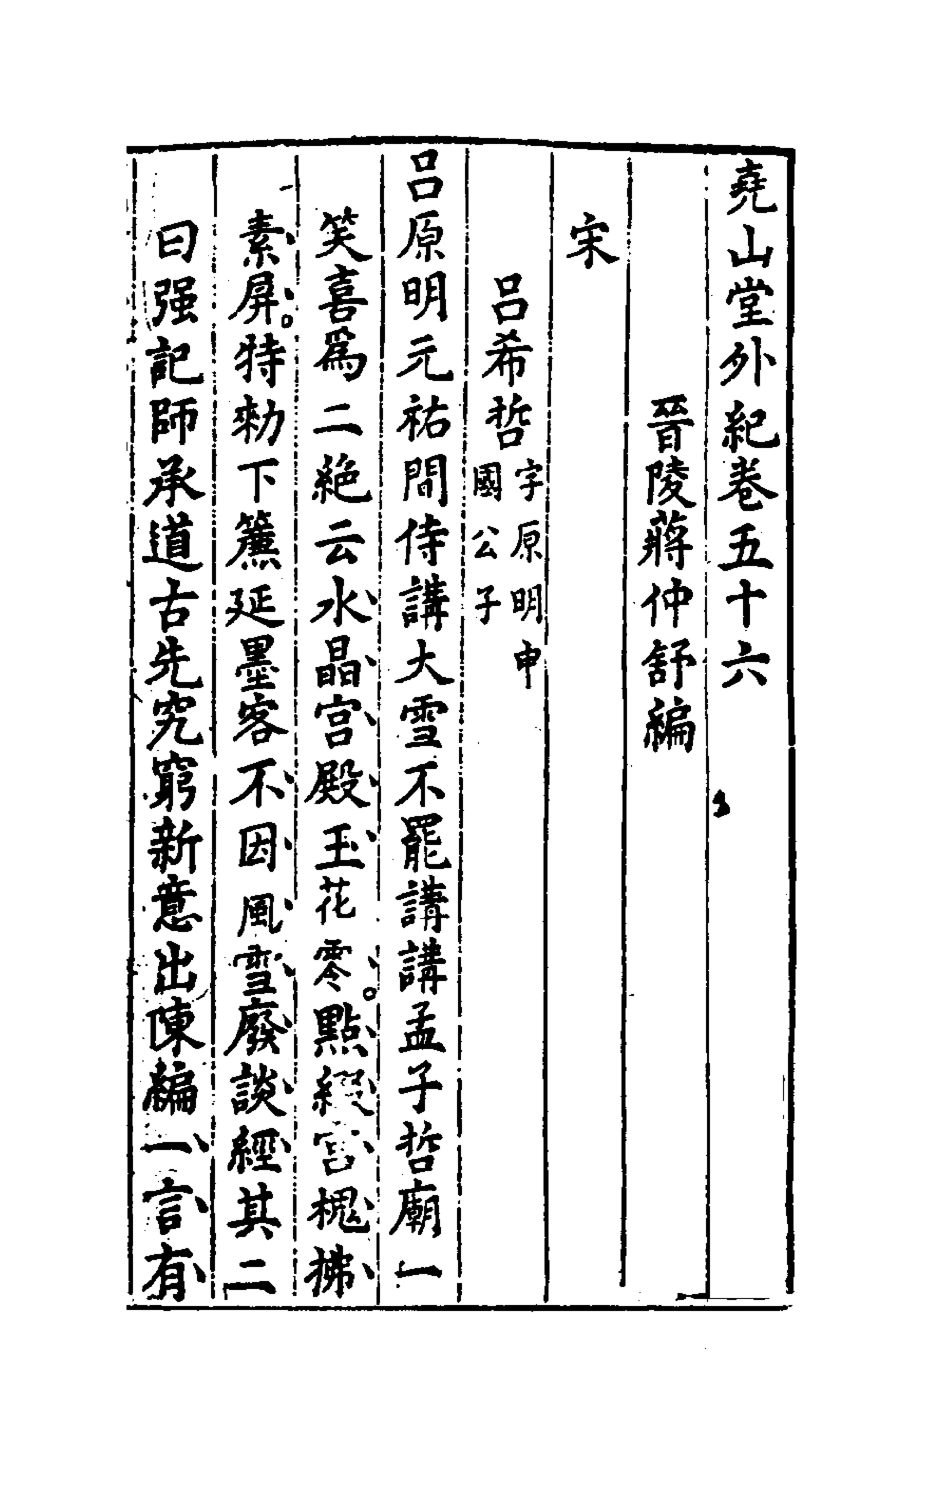 堯山堂外紀卷五十六
晉陵蔣仲舒編
宋
呂希哲字原明申國公子
呂原明元祐間侍講大雪不罷講講孟子哲廟一
笑喜爲二絕云水晶宮殿玉花零。點綴宮槐拂
素屏。特勑下簾延墨客不因風雪廢談經其二
曰强記師承道古先究窮新意出陳編一言有